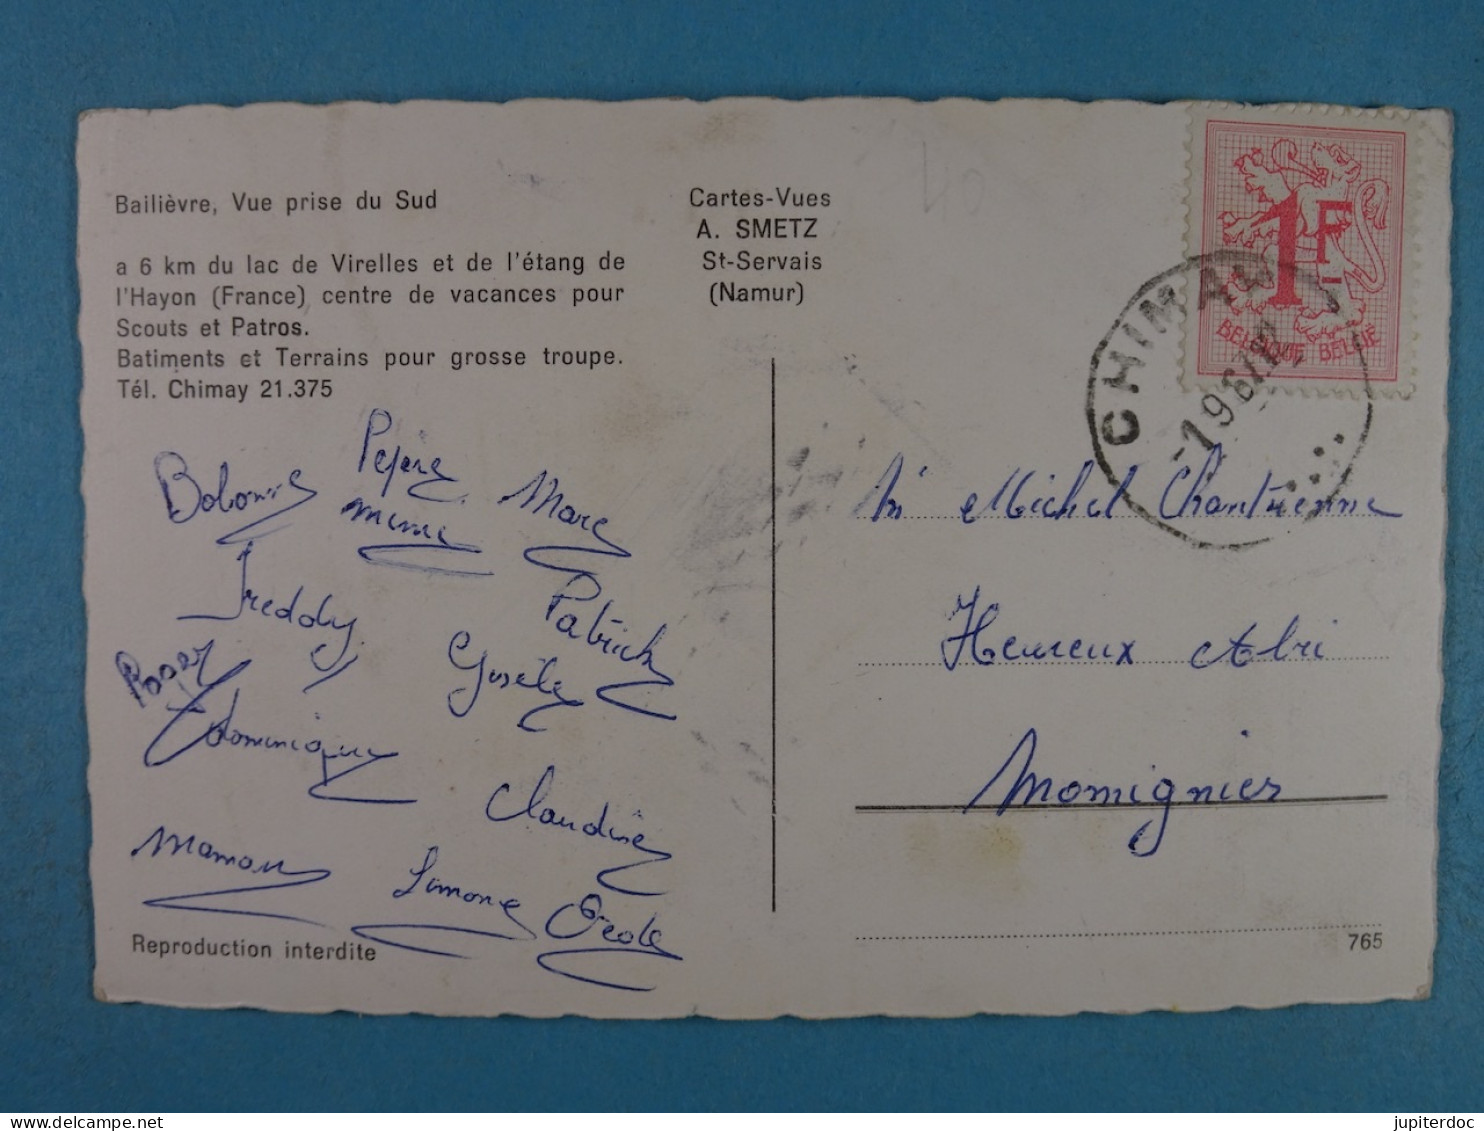 Bailièvre, Vue prise du Sud
a 6 km du lac de Virelles et de l'étang de
l'Hayon (France) centre de vacances pour
Scouts et Patros.
Batiments et Terrains pour grosse troupe.
Tél. Chimay 21.375
Cartes-Vues
A. SMETZ
St-Servais
(Namur)
1F
BELGIQUE BELGIË
CHIMAY
Pepère
meme
Marc
Freddy
Patrick
Gisèle
Roger
dominique
Claudine
maman
Simone
Reproduction interdite
Michel Chantrenne
Heureux Abri
Momignies
765
jupiterdoc